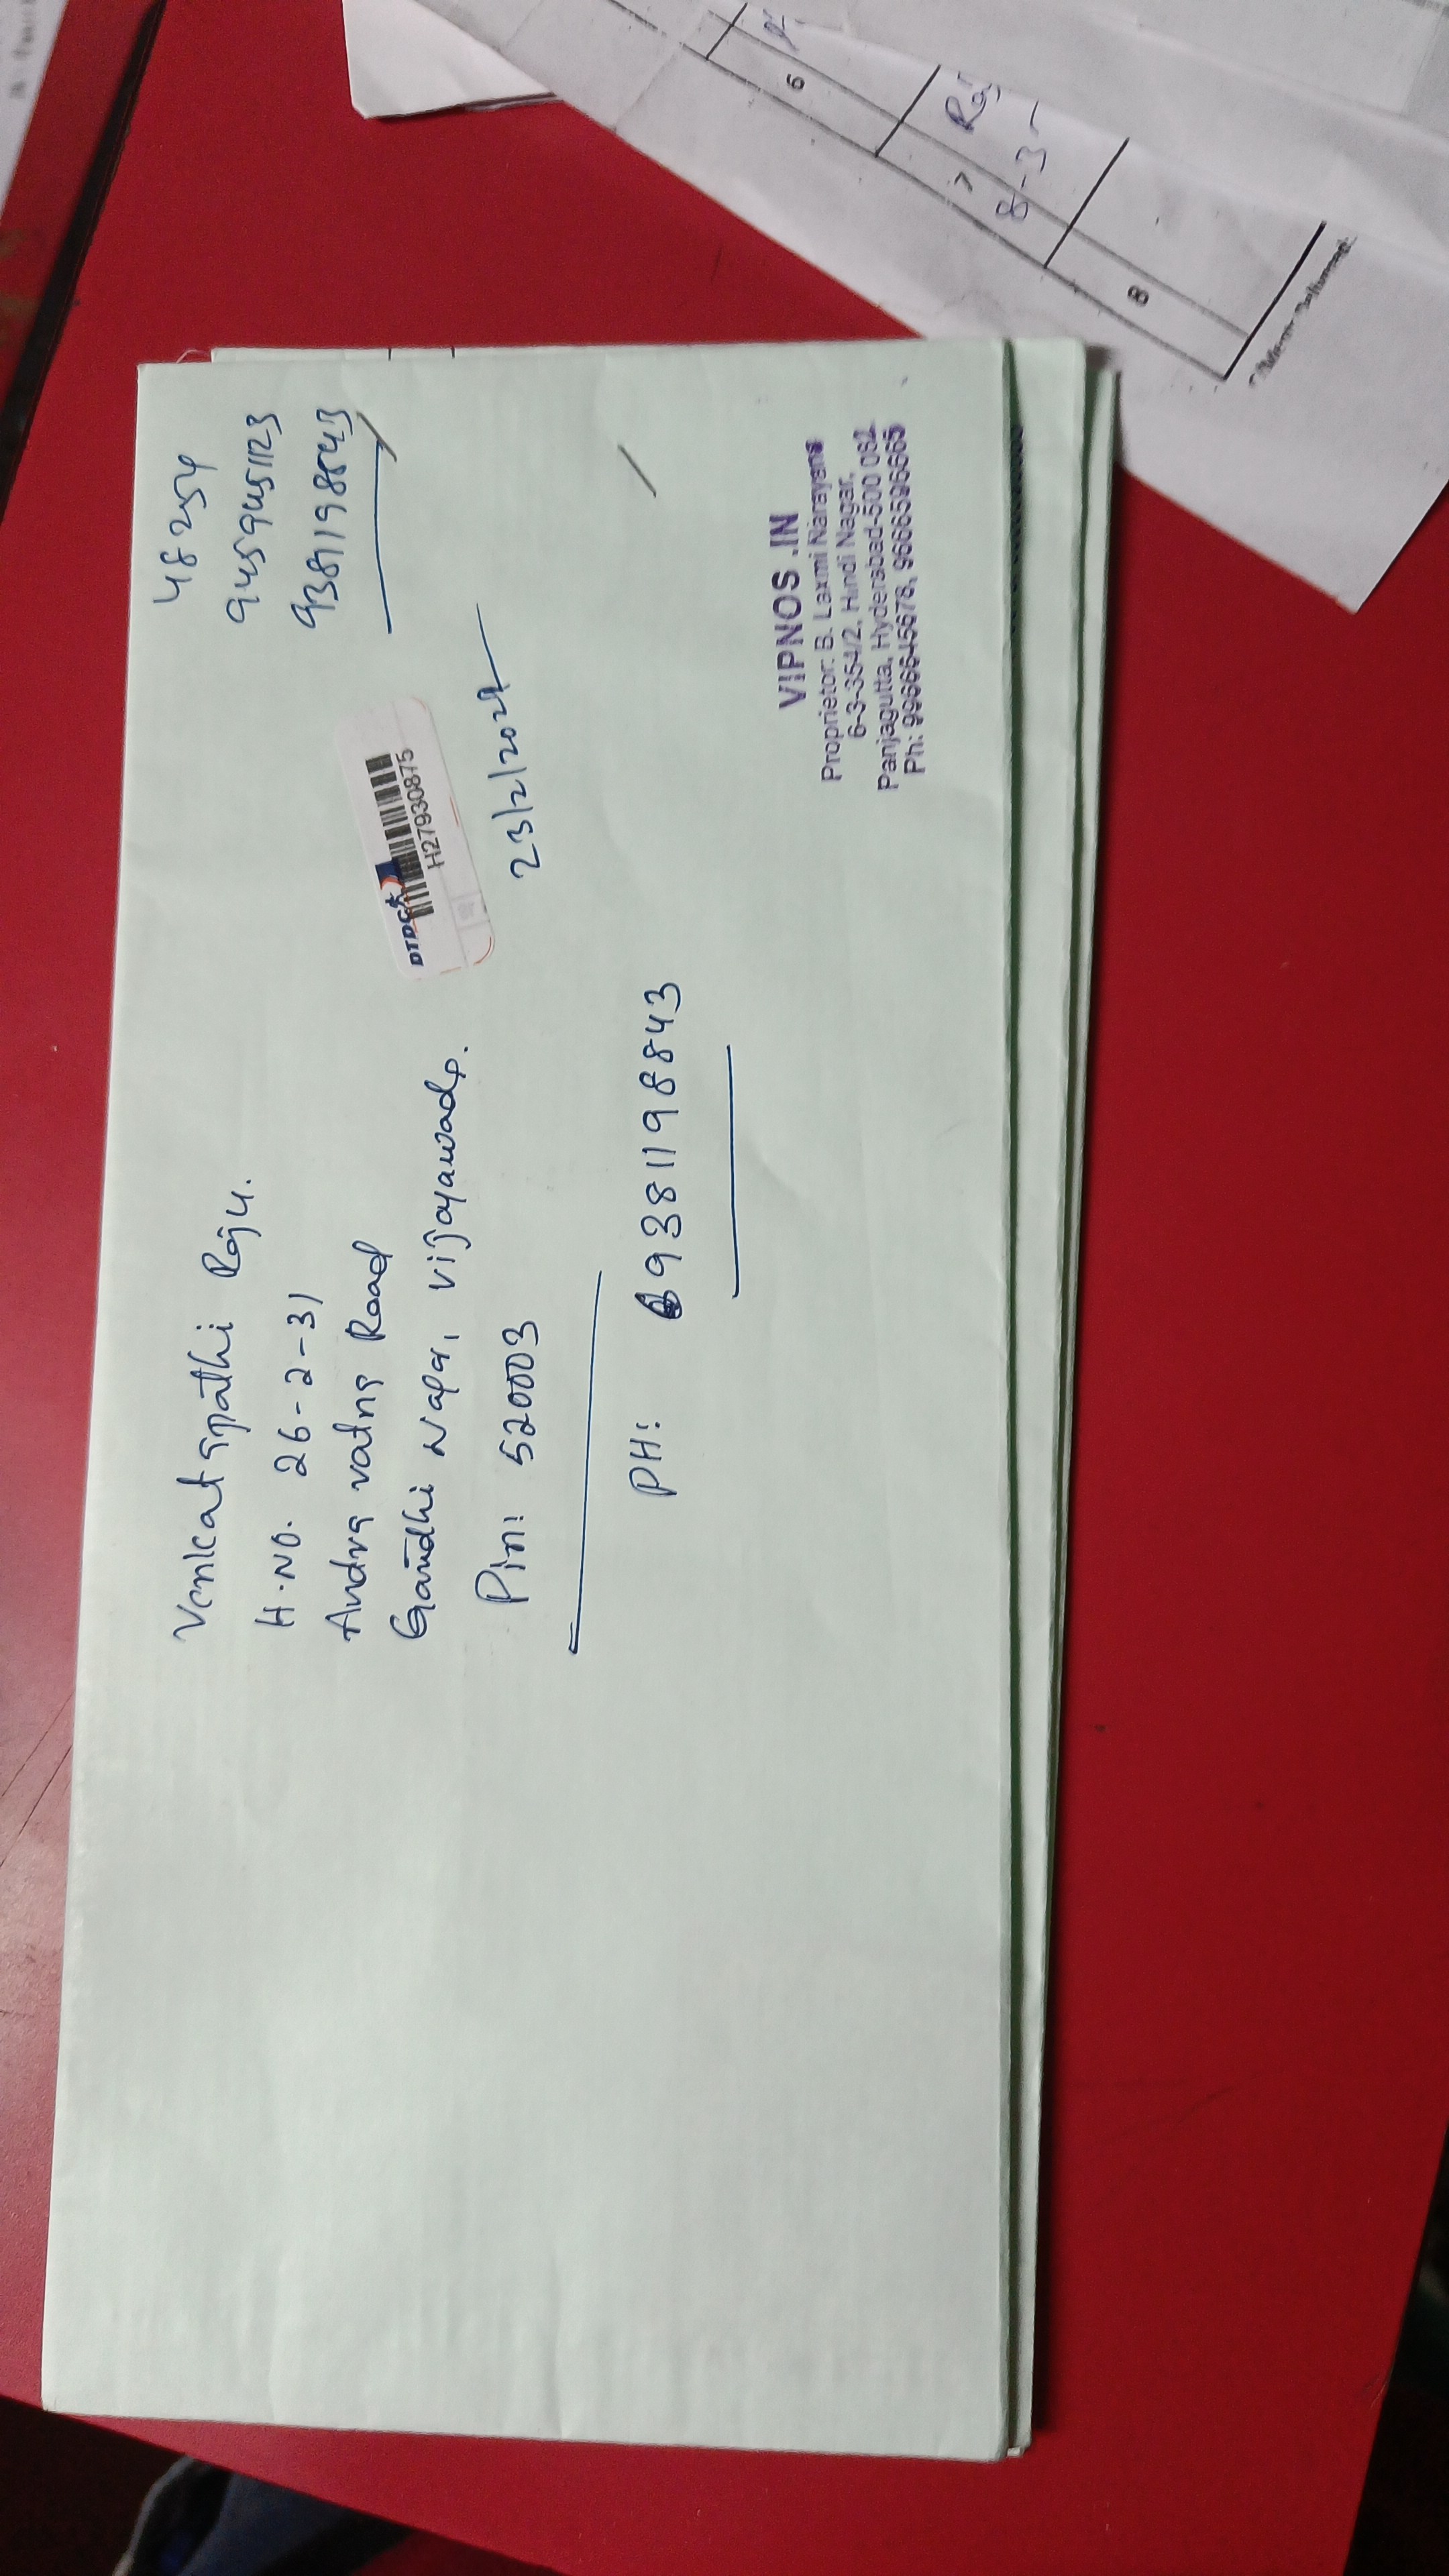 48254
9459451123
9381198843
Venkatapathi Raju.
H.NO. 26-2-31
Andra vatna Road
Gandhi Nagar, Vijayawada.
Pin: 520003
DTDC
H27930875
23/2/2024
PH: 9381198843
VIPNOS.IN
Proprietor: B. Laxmi Narayana
6-3-354/2, Hindi Nagar,
Panjagutta, Hyderabad-500 082.
Ph: 9666596665
6
7
Raj
8-3-
8